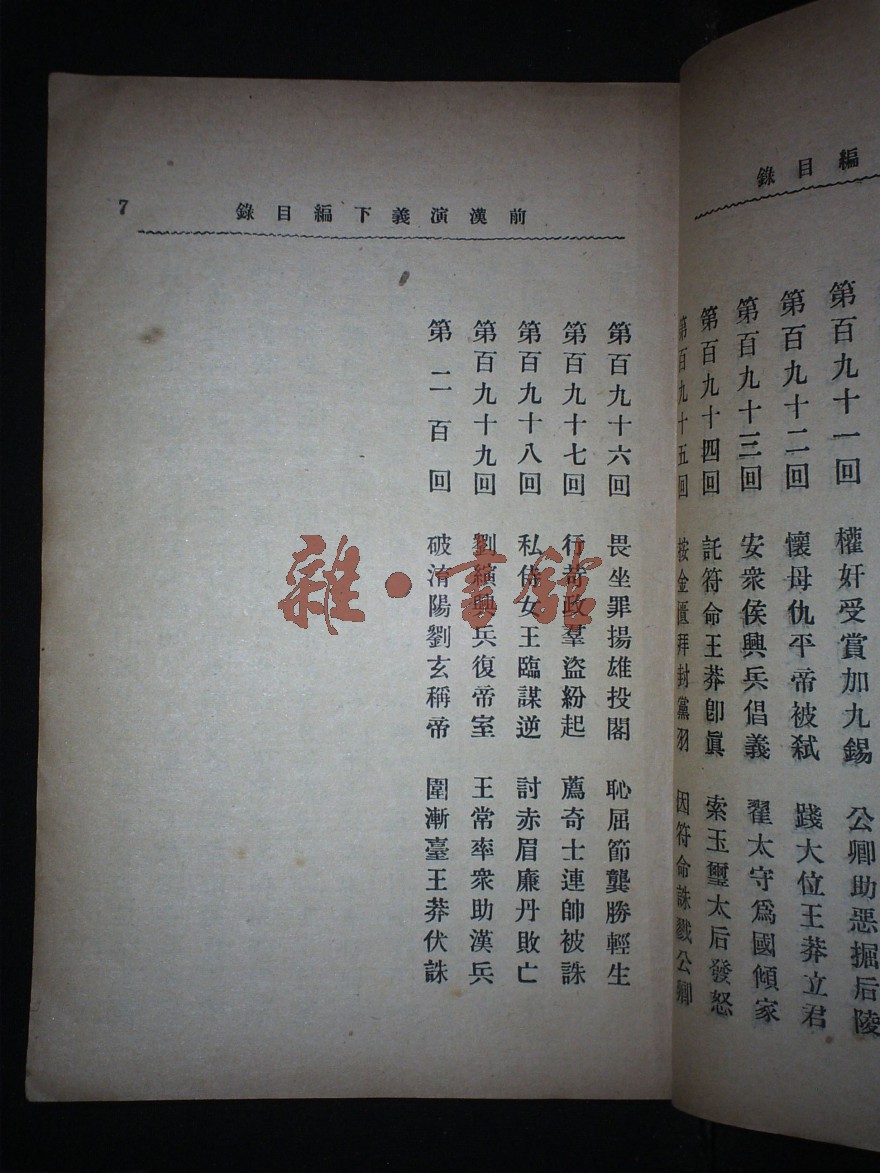 編目錄
第百九十一回 權奸受賞加九錫 公卿助惡掘后陵
第百九十二回 懷母仇平帝被弑 踐大位王莽立君
第百九十三回 安衆侯興兵倡義 翟太守爲國傾家
第百九十四回 託符命王莽卽眞 索玉璽太后發怒
第百九十五回 按金匱拜封黨羽 因符命誅戮公卿
前漢演義下編目錄
7
第百九十六回 畏坐罪揚雄投閣 恥屈節龔勝輕生
第百九十七回 行苛政羣盜紛起 薦奇士連帥被誅
第百九十八回 私侍女王臨謀逆 討赤眉廉丹敗亡
第百九十九回 劉縯興兵復帝室 王常率衆助漢兵
第二百回 破淯陽劉玄稱帝 圍漸臺王莽伏誅
雜·書館